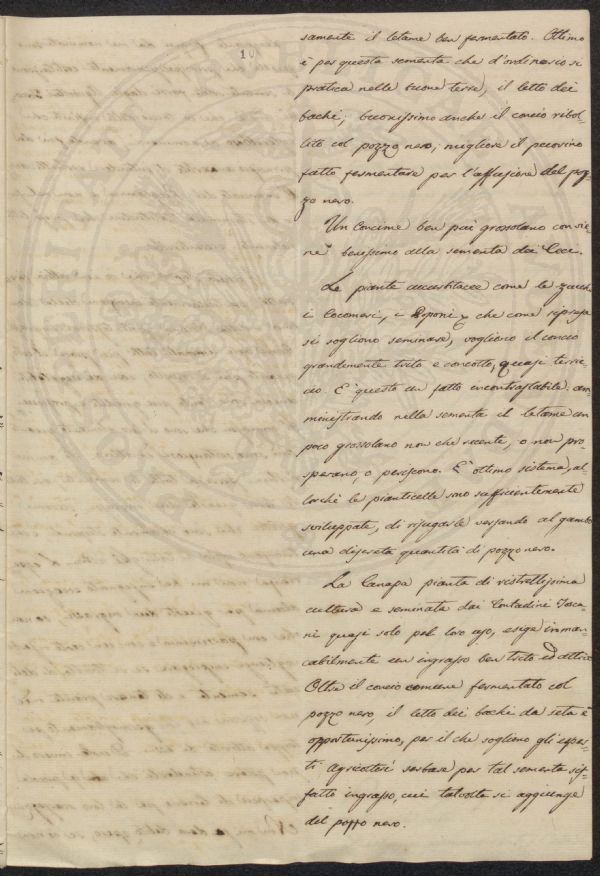 10
samente il letame ben fermentato. Ottimo
è per questa sementa che d'ordinario si
pratica nelle buone terre, il letto dei
bachi; buonissimo anche il concio ribol-
lito col pozzo nero; migliore il pecorino
fatto fermentare per l'affusione del poz-
zo nero.
Un Concime ben più grossolano convie-
ne benissimo alla sementa dei Ceci.
Le piante cucurbitacee come le zucche
i Cocomeri, i Poponi & che come
si sogliono seminare, vogliono il concio
grandemente trito e concotto, quasi terric-
cio. E' questo un fatto incontrastabile: am-
ministrando nella sementa il letame un
poco grossolano non che recente, o non pro-
sperano, o periscono. E' ottimo sistema, al-
lorchè le pianticelle sono sufficientemente
sviluppate, di rifugarle versando al gambo
una discreta quantità di pozzo nero.
La Canapa pianta di ristrettissima
cultura e seminata dai Contadini Tosca-
ni quasi solo pel loro uso, esige imman-
cabilmente un ingrasso ben trito ed attivo
Oltre il concio comune fermentato col
pozzo nero, il letto dei bachi da seta è
opportunissimo, per il che sogliono gli esper-
ti agricoltori serbare per tal sementa sif-
fatto ingrasso, cui talvolta si aggiunge
del pozzo nero.